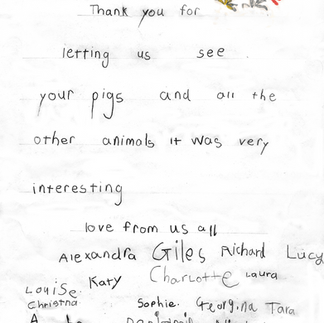 Thank you for
letting us see
your pigs and all the
other animals it was very
interesting
love from us all
Alexandra Giles Richard Lucy
Louise Katy Charlotte Laura
Christna Sophie. Georgina Tara